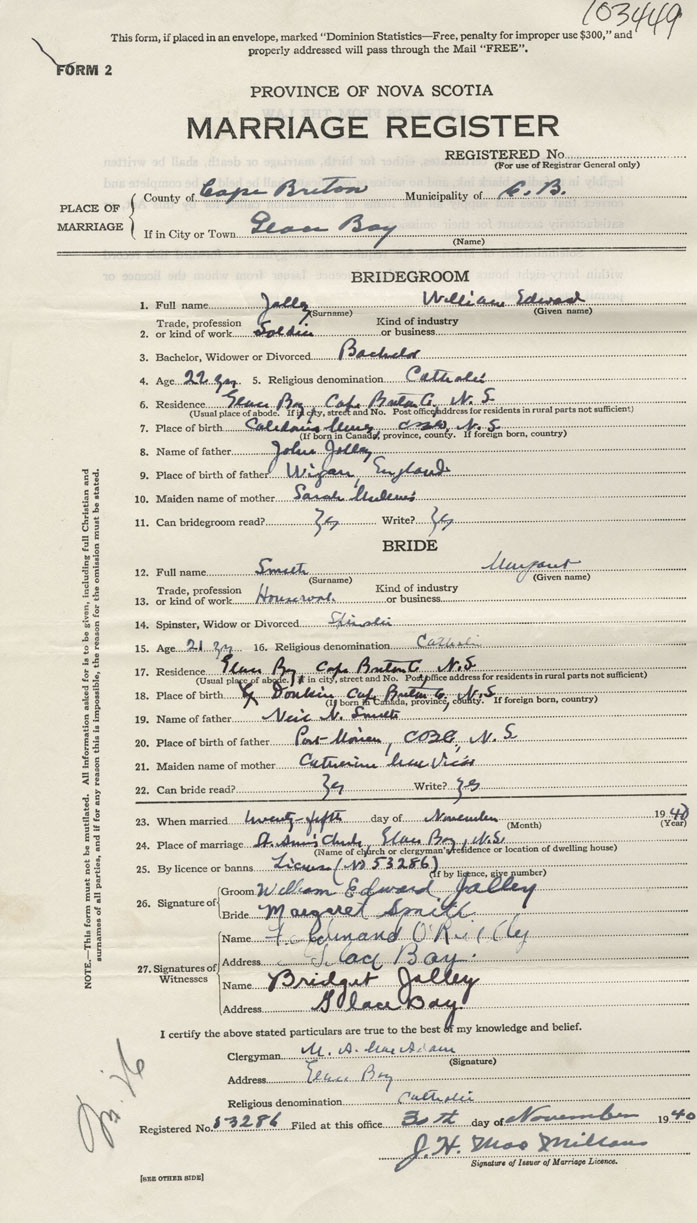 103449
This form, if placed in an envelope, marked "Dominion Statistics—Free, penalty for improper use $300," and
properly addressed will pass through the Mail "FREE".
FORM 2
PROVINCE OF NOVA SCOTIA
MARRIAGE REGISTER
REGISTERED No.
(For use of Registrar General only)
PLACE OF MARRIAGE
County of Cape Breton Municipality of C. B.
If in City or Town Glace Bay
(Name)
BRIDEGROOM
1. Full name Jolley William Edward
(Surname) (Given name)
Trade, profession Kind of industry
2. or kind of work Soldier or business
3. Bachelor, Widower or Divorced Bachelor
4. Age 22 yrs 5. Religious denomination Catholic
6. Residence Glace Bay Cape Breton Co, N.S
(Usual place of abode. If in city, street and No. Post office address for residents in rural parts not sufficient)
7. Place of birth Caledonia Mines N.S
(If born in Canada, province, county. If foreign born, country)
8. Name of father John Jolley
9. Place of birth of father Wigan, England
10. Maiden name of mother Sarah
11. Can bridegroom read? Yes Write? Yes
BRIDE
12. Full name Smith Margaret
(Surname) (Given name)
Trade, profession Kind of industry
13. or kind of work Housework or business
14. Spinster, Widow or Divorced Spinster
15. Age 21 yrs 16. Religious denomination Catholic
17. Residence Glace Bay Cape Breton Co N.S
(Usual place of abode. If in city, street and No. Post office address for residents in rural parts not sufficient)
18. Place of birth Donkin Cape Breton Co, N.S
(If born in Canada, province, county. If foreign born, country)
19. Name of father Neil N. Smith
20. Place of birth of father Port Morien, N.S
21. Maiden name of mother Catherine MacVicar
22. Can bride read? Yes Write? Yes
23. When married twenty-fifth day of November 1940
(Month) (Year)
24. Place of marriage St. Ann's Church, Glace Bay, N.S.
(Name of church or clergyman's residence or location of dwelling house)
25. By licence or banns License (No 53286)
(If by licence, give number)
26. Signature of
Groom William Edward Jolley
Bride Margaret Smith
27. Signatures of Witnesses
Name Ferdinand O'Reilly
Address Glace Bay.
Name Bridget Jolley
Address Glace Bay
I certify the above stated particulars are true to the best of my knowledge and belief.
Clergyman M. A. MacAdam
(Signature)
Address Glace Bay
Religious denomination Catholic
Registered No. 53286 Filed at this office 30th day of November 1940
J. H. MacMillan
Signature of Issuer of Marriage Licence.
[SEE OTHER SIDE]
NOTE.—This form must not be mutilated. All information asked for is to be given, including full Christian and
surnames of all parties, and if for any reason this is impossible, the reason for the omission must be stated.